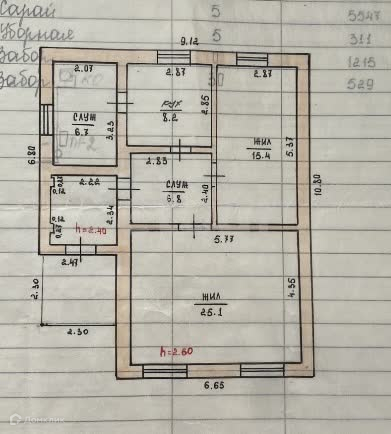 Сарай 5 5547
Уборная 5 311
Забор 1215
Забор 30 529
9.12
2.07
2.87
2.87
КУХ
8.2
2.85
СЛУЖ
6.7
3.23
6.80
ЖИЛ
15.4
5.37
10.80
2.83
СЛУЖ
6.8
2.40
2.22
0.12
2.34
0.12
h=2.40
2.47
5.77
2.30
2.30
ЖИЛ
25.1
4.35
h=2.60
6.65